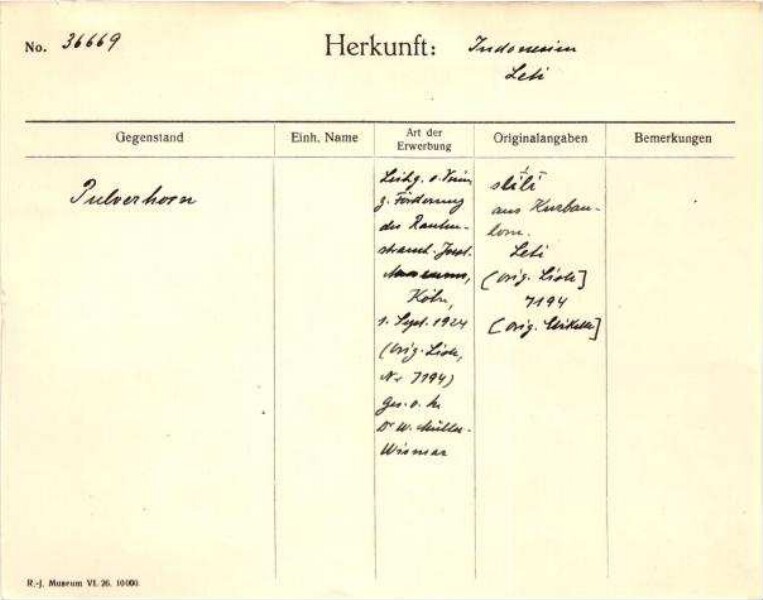 No. 36669
Herkunft: Indonesien
Leti
Gegenstand
Einh. Name
Art der
Erwerbung
Originalangaben
Bemerkungen
Pulverhorn
Leihg. v. Verein
z. Förderung
des Rauten-
strauch-Joest-
Museums,
Köln,
1. Sept. 1924
(Orig. Liste,
Nr 7194)
Ges. v. H.
Dr W. Müller-
Wismar
aus Kerbau-
horn.
Leti
(orig. Liste]
7194
[orig. Etikette]
R.-J. Museum VI. 26. 10000.